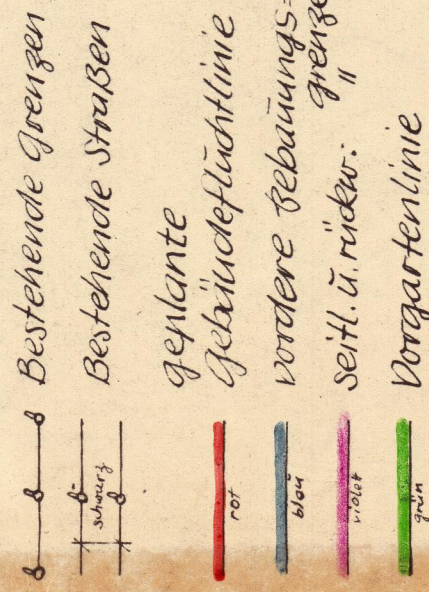 Bestehende Grenzen
schwarz
Bestehende Straßen
geplante
rot
Gebäudefluchtlinie
blau
vordere Bebauungs=
grenze
violett
seitl. u. rückw: "
grün
Vorgartenlinie